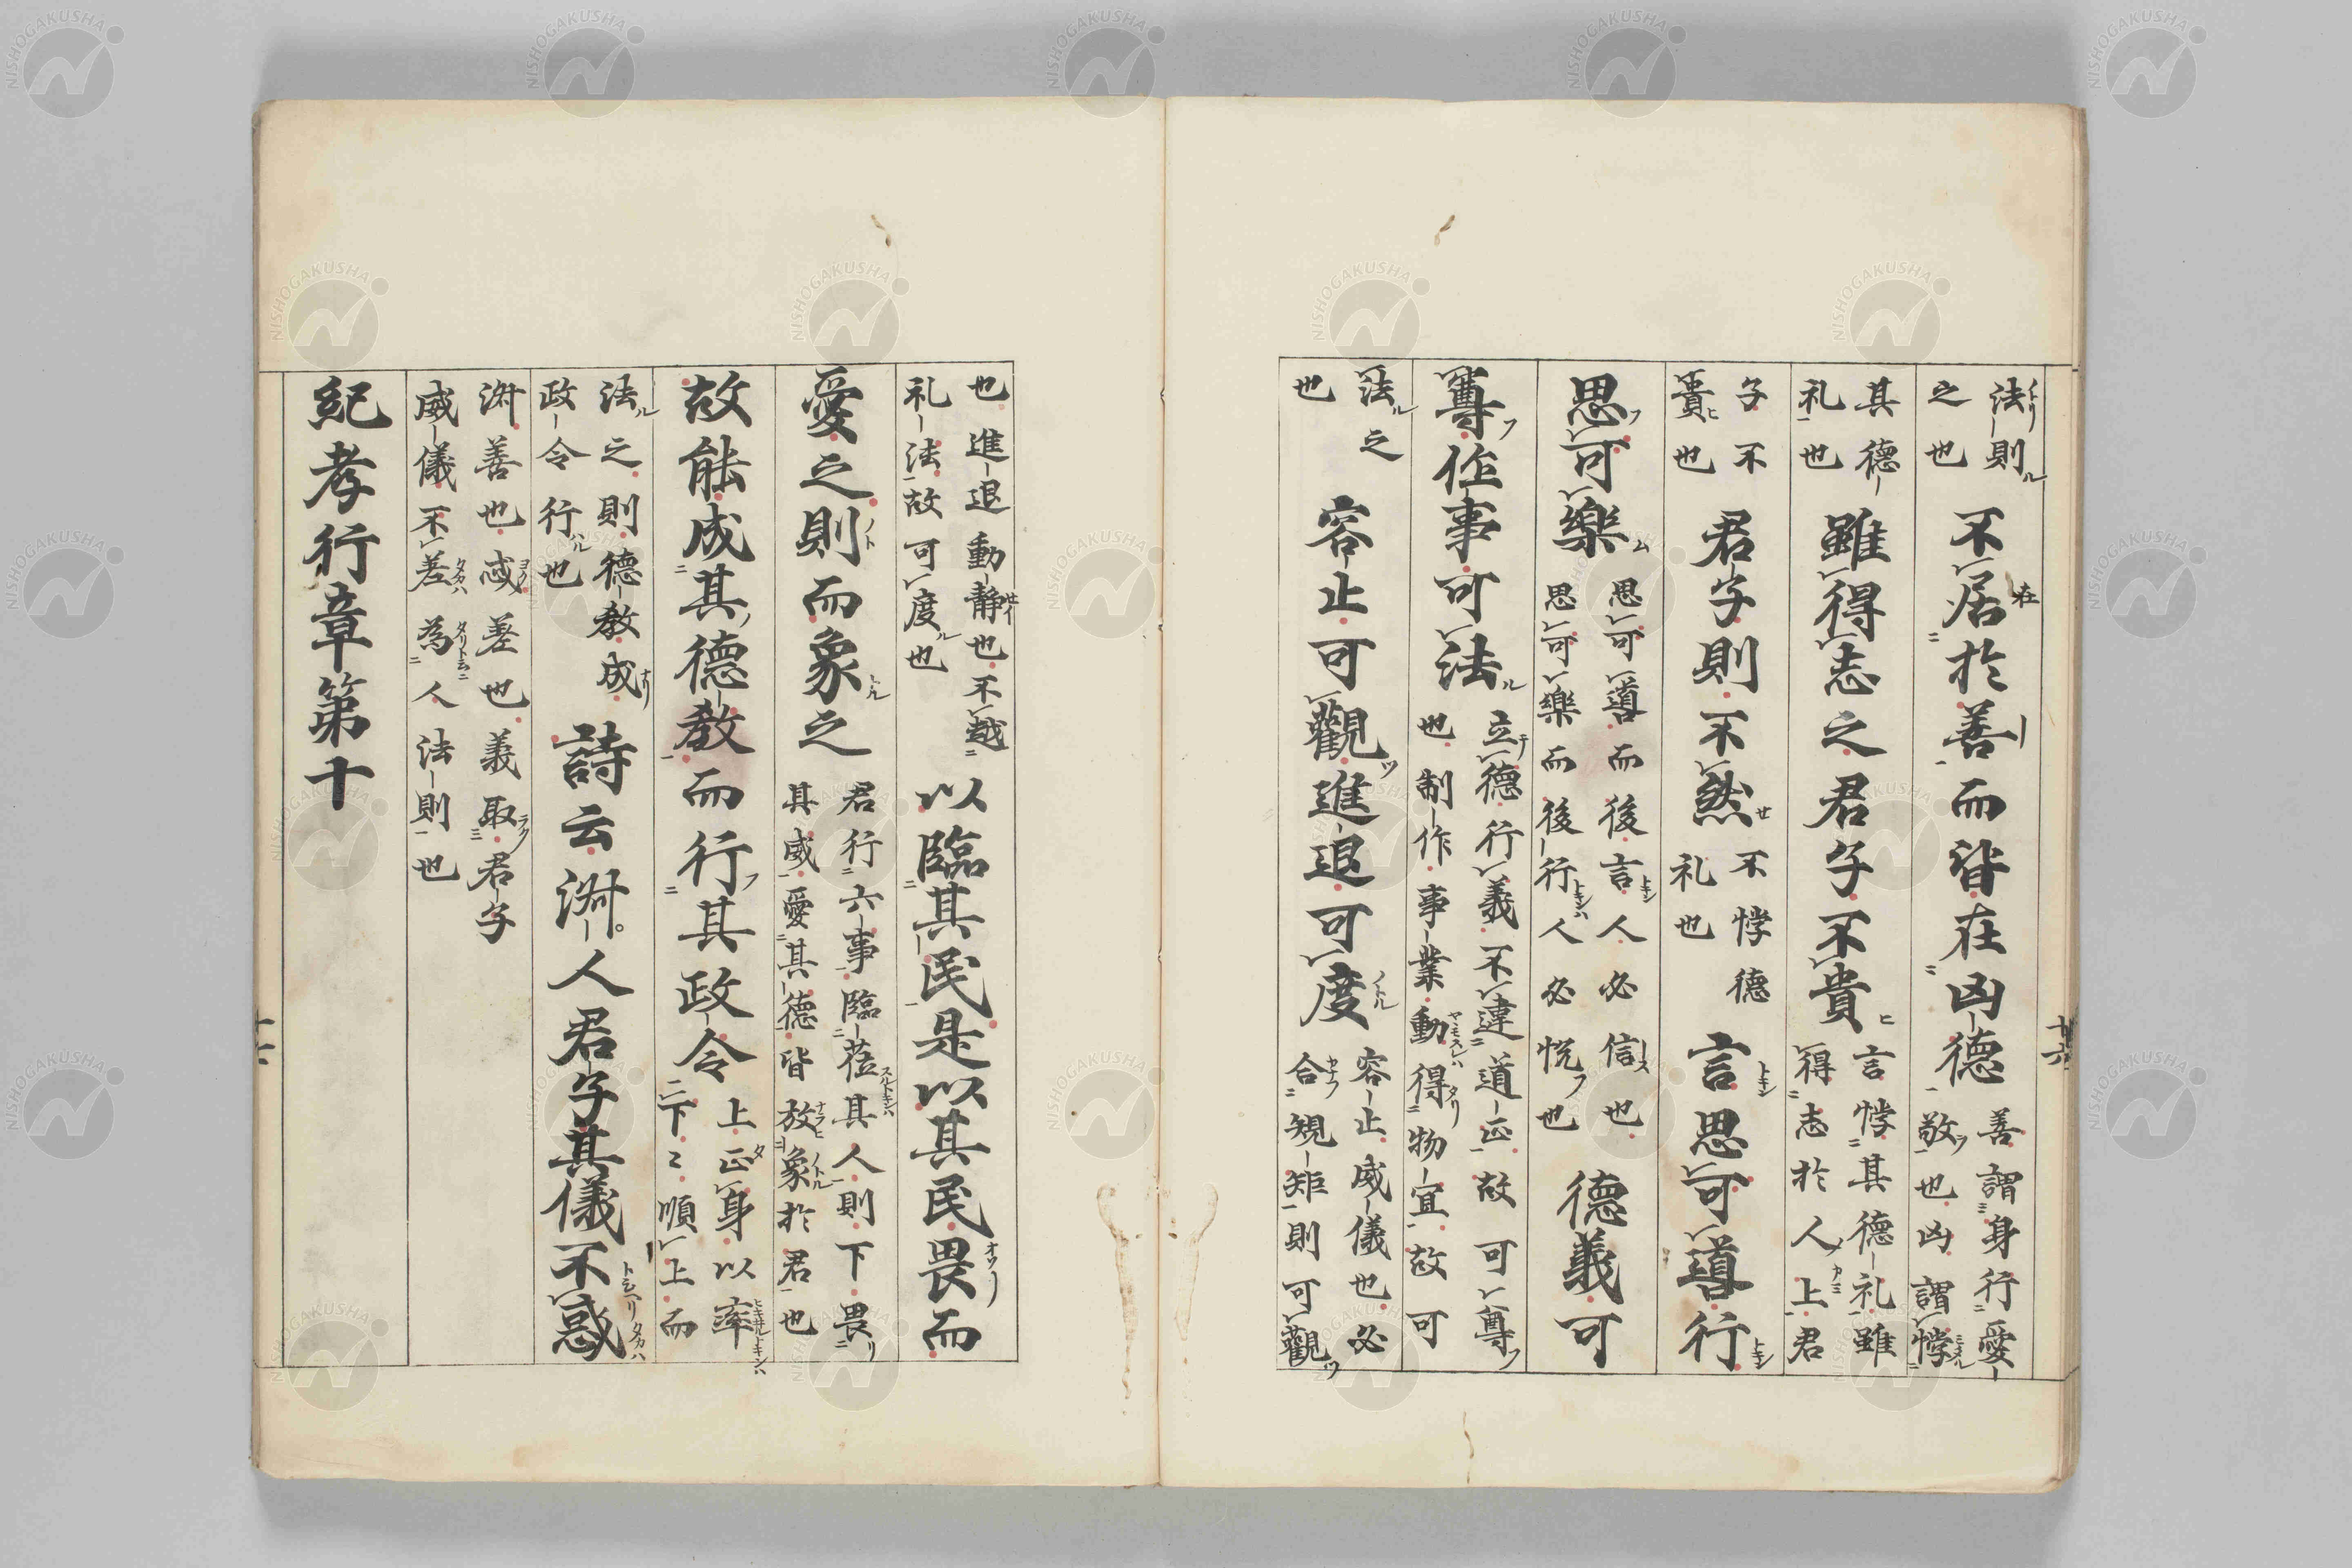 法則
之也
不居於善而皆在凶德
善謂身行愛
敬也凶謂悖
其德
礼也
雖得志之君子不貴
言悖其德礼雖
得志於人上君
子不
貴也
君子則不然
不悖德
礼也
言思可道行
思可樂
思可導而後言人必信也
思可樂而後行人必悦也
德義可
尊作事可法
立德行義不違道正故可尊
也制作事業動得物宜故可
法之
也
容止可觀進退可度
容止威儀也必
合規矩則可觀
也進退動静也不越
礼法故可度也
以臨其民是以其民畏而
愛之則而象之
君行六事臨莅其人則下畏
其威愛其德皆放象於君也
故能成其德教而行其政令
上正身以率
下〻順上而
法之則德教成
政令行也
詩云淑人君子其儀不忒
淑善也忒差也義取君子
威儀不差為人法則也
紀孝行章第十
十六
NISHOGAKUSHA